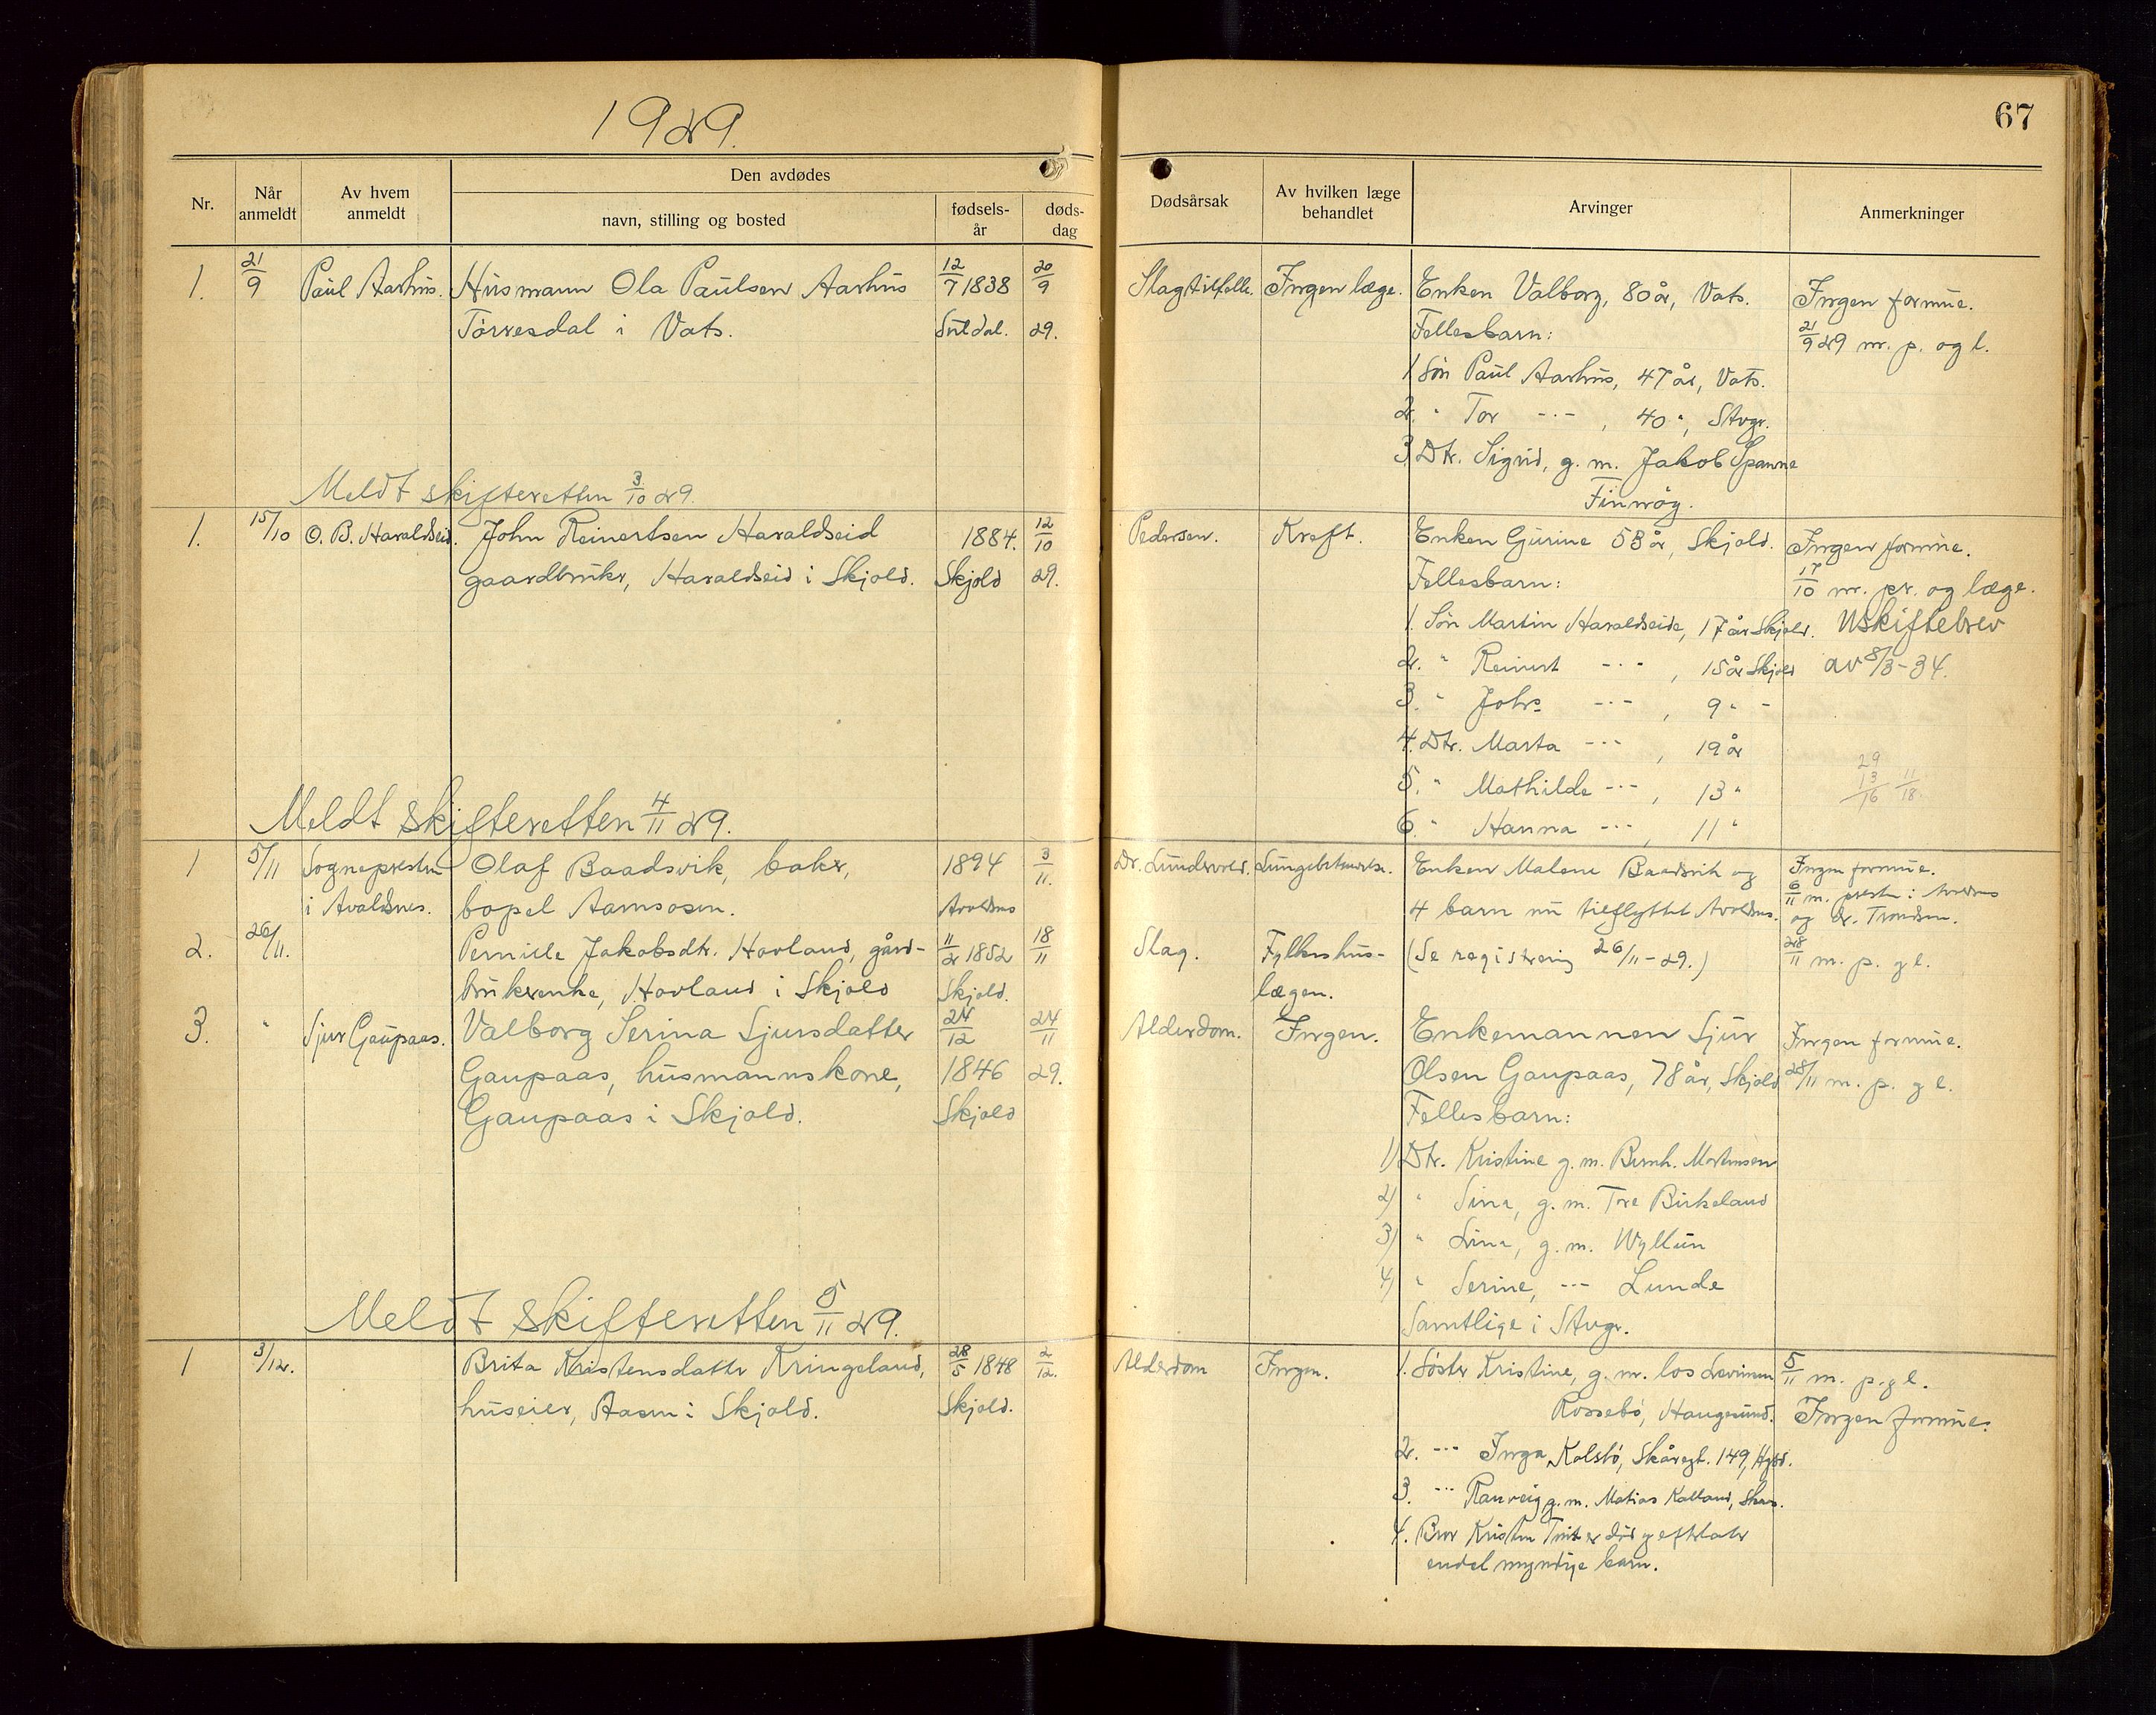 1929.
67
Nr.
Når anmeldt
Av hvem anmeldt
Den avdødes
navn, stilling og bosted
fødsels-år
døds-dag
Dødsårsak
Av hvilken læge behandlet
Arvinger
Anmerkninger
1. 21/9 Paul Aarhus. Husmann Ola Paulsen Aarhus 12/7 1838 20/9 Slagtilfelle. Ingen læge. Enken Valborg, 80 år, Vats. Ingen formue.
Tørresdal i Vats. Suldal. 29. Fellesbarn: 21/9 29 m. p. og l.
1 Søn Paul Aarhus, 47 år, Vats.
2. " Tor -·-, 40 ", Stvgr.
3. Dtr. Sigrid, g. m. Jakob Spanne
Finnøy.
Meldt skifteretten 3/10 29.
1. 15/10 O. B. Haraldseid. John Reinertsen Haraldseid 1884. 12/10 Pedersen. Kreft. Enken Gurine 53 år, Skjold. Ingen formue.
gaardbruker, Haraldseid i Skjold. Skjold 29. Fellesbarn: 17/10 m. pr. og læge.
1. Søn Martin Haraldseide, 17 år Skjold. Uskiftebrev
2. " Reinert -·-, 15 år Skjold av 8/3-34.
3. " Johs -·-, 9 " -
4. Dtr. Marta -·-, 19 år
5. " Mathilde -·-, 13 "
6. " Hanna -·-, 11 "
29
13 11
16 18
Meldt skifteretten 4/11 29.
1 5/11 Sognepresten Olaf Baadsvik, baker, 1894 3/11. Dr. Lundevold. Lungebetennelse. Enken Malene Baadsvik og Ingen formue.
i Avaldsnes. bopel Aamsosen. Avaldsnes 4 barn nu tilflyttet Avaldsnes. 6/11 m. presten i Avaldsnes
og dr. Trondsen.
2. 26/11. Pernille Jakobsdtr. Hovland, gård- 11/2 1852 18/11 Slag. Fylkeshus- (Se registrering 26/11-29.) 28/11 m. p. og l.
brukerenke, Hovland i Skjold Skjold. lægen.
3. " Sjur Gaupaas. Valborg Serina Sjursdatter 24/12 24/11 Alderdom. Ingen. Enkemannen Sjur Ingen formue.
Gaupaas, husmannskone, 1846 29. Olsen Gaupaas, 78 år, Skjold 28/11 m. p. og l.
Gaupaas i Skjold. Skjold Fellesbarn:
1) Dtr. Kristine g. m. Bernh. Mortensen
2) " Sina, g. m. Tore Birkeland
3) " Lina, g. m. Wyllun
4) " Serine, -·- Lunde
Samtlige i Stvgr.
Meldt skifteretten 5/11 29.
1 3/12. Brita Kristensdatter Kringeland, 28/5 1848 2/12. Alderdom Ingen. 1. Søster Kristine, g. m. los 5/11 m. p. og l.
huseier, Aasen i Skjold. Skjold. Rossebø, Haugesund. Ingen formue.
2. -·- Inga Kolstø, Skåregt. 149, Hgsd.
3. -·- Ranveig g. m. Matias Kalland,
4. Bror Kristen er død og efterlater
endel myndige barn.